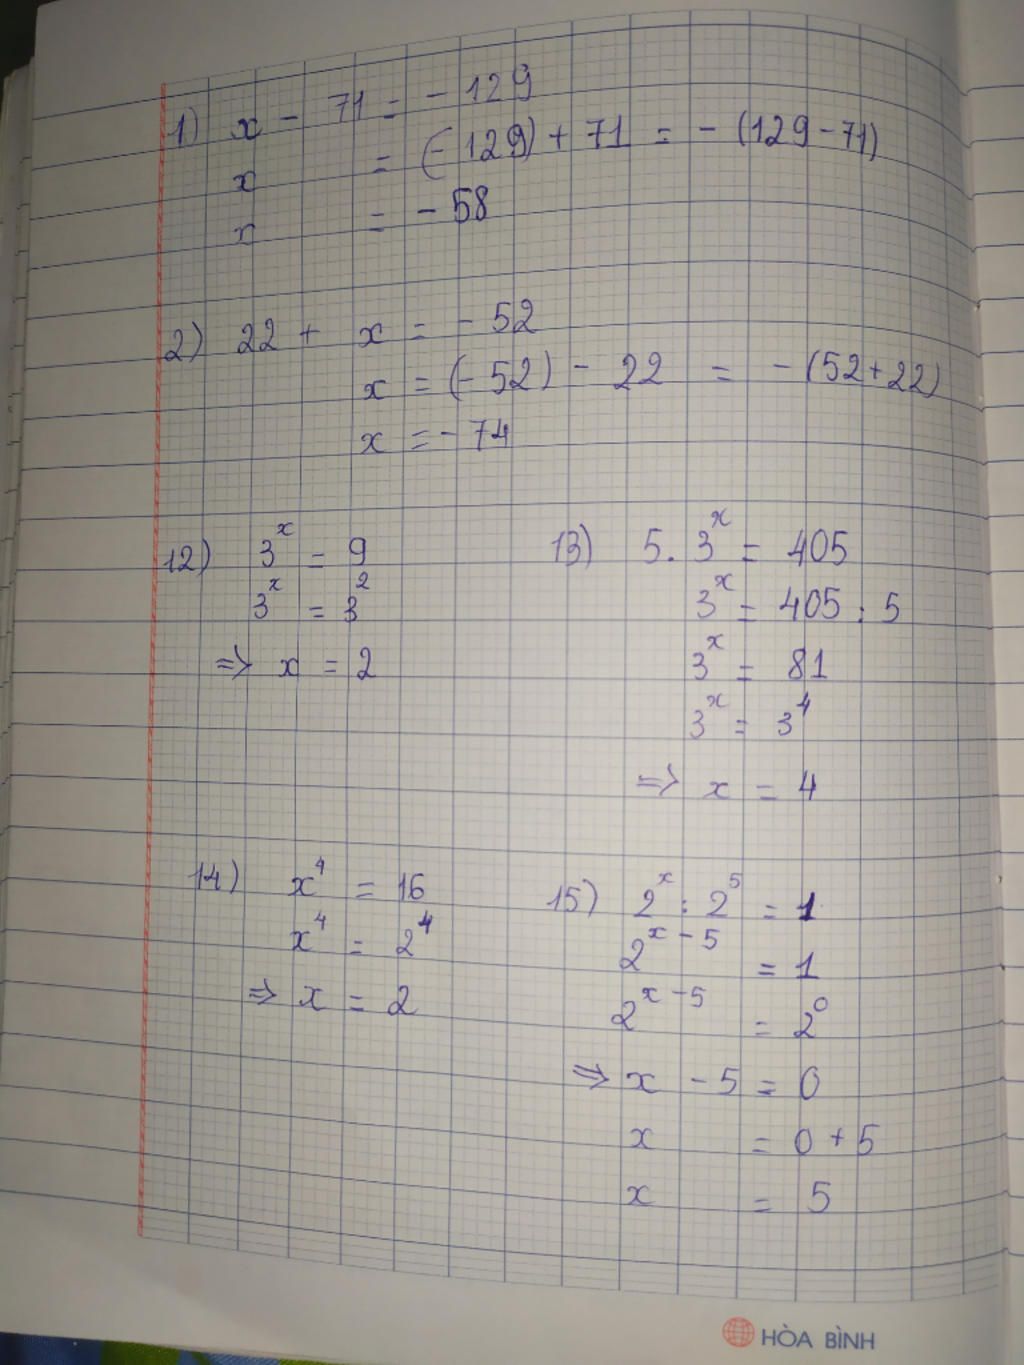 1) x - 71 = - 129
x = (- 129) + 71 = - (129 - 71)
x = - 58
2) 22 + x = - 52
x = (- 52) - 22 = - (52 + 22)
x = - 74
12) 3^x = 9
3^x = 3^2
=> x = 2
13) 5. 3^x = 405
3^x = 405 : 5
3^x = 81
3^x = 3^4
=> x = 4
14) x^4 = 16
x^4 = 2^4
=> x = 2
15) 2^x : 2^5 = 1
2^{x - 5} = 1
2^{x - 5} = 2^0
=> x - 5 = 0
x = 0 + 5
x = 5
HÒA BÌNH